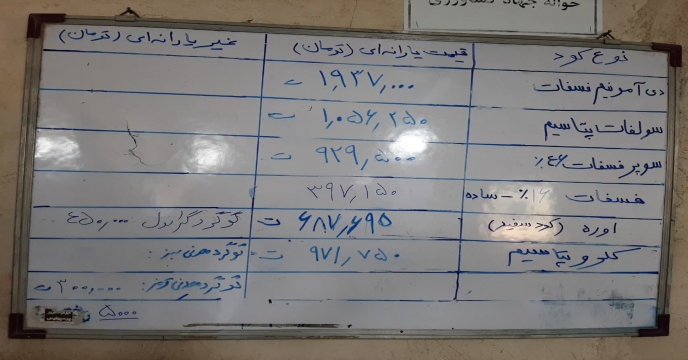 حواله جهاد کشاورزی
نوع کود قیمت یارانه‌ای (تومان) غیر یارانه‌ای (تومان)
دی آمونیم فسفات ۱,۹۳۷,۰۰۰ ت
سولفات پتاسیم ۱,۰۵۶,۲۵۰ ت
سوپر فسفات ۴۶٪ ۹۲۹,۵۰۰ ت
فسفات ۱۶٪ - ساده ۳۹۷,۱۵۰
اوره (کود سفید) ۶۸۷,۶۹۵ ت گوگرد گرانول ۴۵۰,۰۰۰
کلرو پتاسیم ۹۷۱,۷۵۰ ت گوگرد معدنی سبز:
گوگرد معدنی قرمز: ۳۰۰,۰۰۰ ت
۵۰۰۰